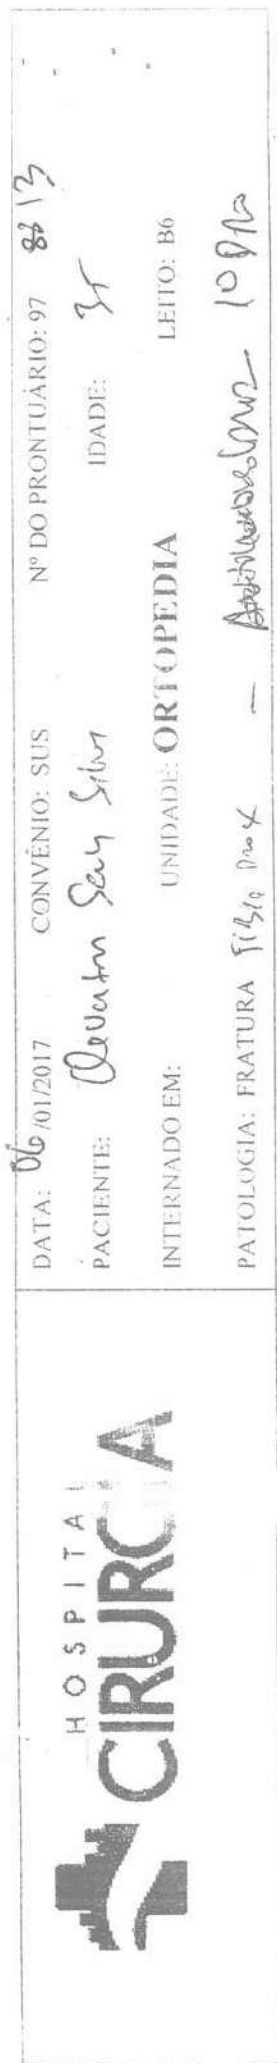 HOSPITAL
CIRURGIA
DATA: 06/01/2017 CONVÊNIO: SUS Nº DO PRONTUÁRIO: 97 8813
PACIENTE: Silva IDADE: 35
INTERNADO EM: UNIDADE: ORTOPEDIA LEITO: B6
PATOLOGIA: FRATURA Tíbia prox — 1º DPO